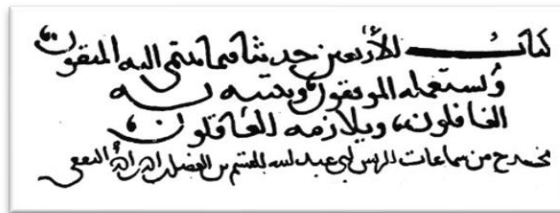 كتاب الأربعين حديثا فيما ينتمي اليه المتقون
ويستعمله الموفقون وينتبه به
الغافلون، ويلازمه العاقلون
مخرج من سماعات الرئيس ابي عبد الله القسم بن الفضل الثقفي